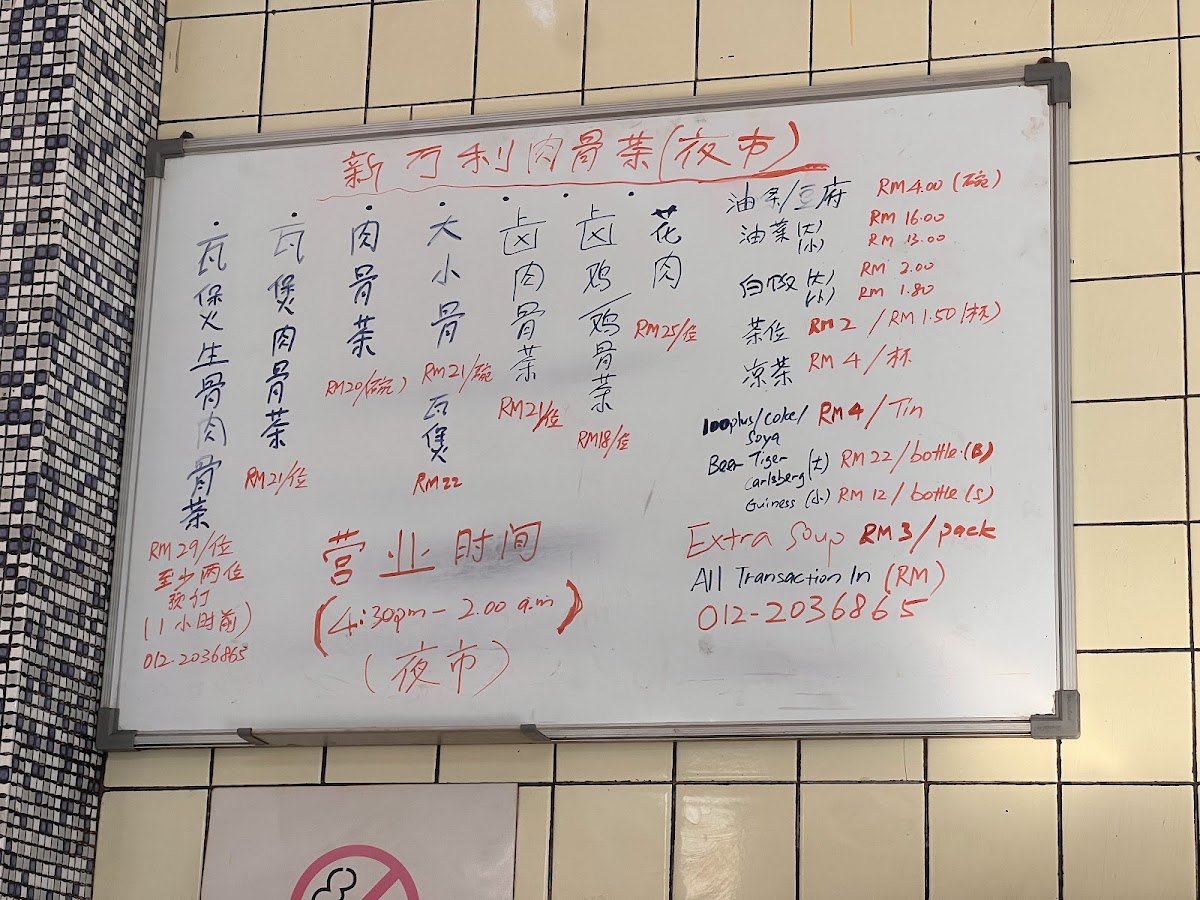 新万利肉骨茶(夜市)
瓦煲生骨肉骨茶
RM29/位
至少两位
预订
(1小时前)
012-2036865
瓦煲肉骨茶
RM21/位
肉骨茶
RM20(碗)
大小骨
RM21/碗
瓦煲
RM22
卤肉骨茶
RM21/位
卤鸡鸡骨茶
RM18/位
花肉
RM25/位
油条/豆腐 RM4.00(碗)
油菜(大) RM 16.00
(小) RM 13.00
白饭(大) RM 2.00
(小) RM 1.80
茶位 RM2 / RM1.50(杯)
凉茶 RM4/杯
100plus/coke/ RM4/Tin
Soya
Beer Tiger
Carlsberg (大) RM22/bottle.(B)
Guiness (小) RM12/bottle(S)
Extra Soup RM3/pack
All Transaction In (RM)
012-2036865
营业时间
(4:30pm - 2.00 a.m)
(夜市)